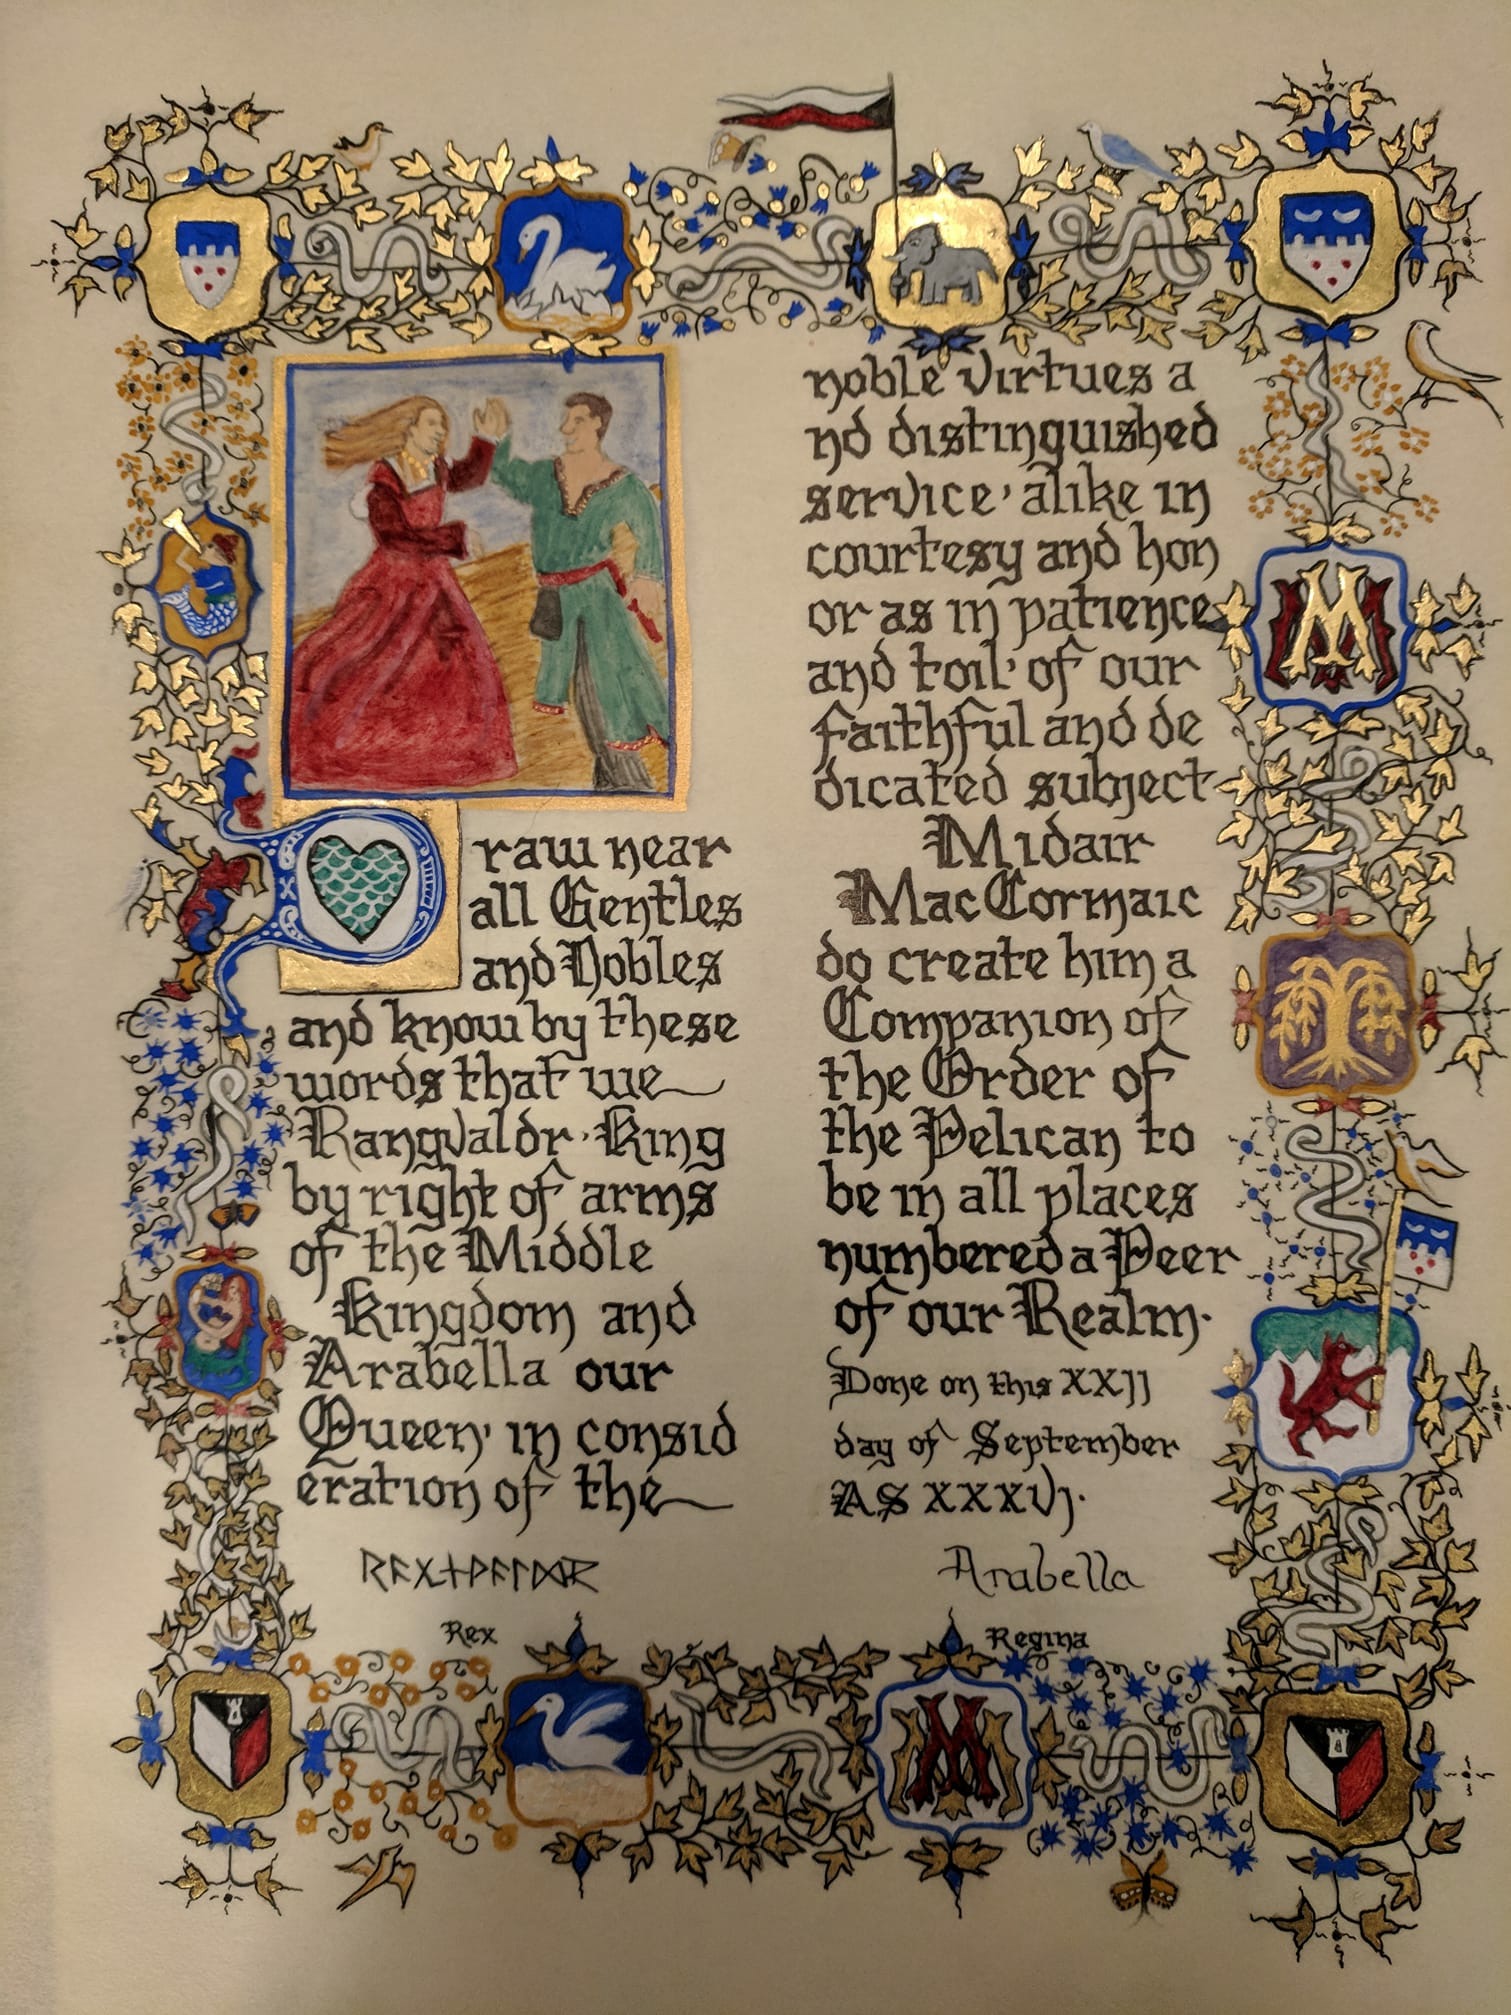 Draw near
all Gentles
and Nobles
and know by these
words that we
Rangvaldr · King
by right of arms
of the Middle
Kingdom and
Arabella our
Queen, in consid
eration of the
noble virtues a
nd distinguished
service, alike in
courtesy and hon
or as in patience
and toil, of our
faithful and de
dicated subject
Midair
MacCormaic
do create him a
Companion of
the Order of
the Pelican to
be in all places
numbered a Peer
of our Realm.
Done on this XXIJ
day of September
AS XXXVJ.
ᚱᚨᚷᚾᚹᚨᛚᛞᚱ
Rex
Arabella
Regina
M
M